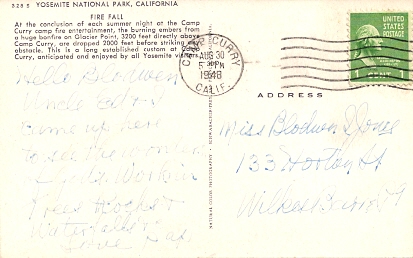 3 2 8 5 YOSEMITE NATIONAL PARK, CALIFORNIA
FIRE FALL
At the conclusion of each summer night at the Camp
Curry camp fire entertainment, the burning embers from
a huge bonfire on Glacier Point, 3200 feet directly above
Camp Curry, are dropped 2000 feet before striking
obstacle. This is a long established custom at
Curry, anticipated and enjoyed by all Yosemite
CAMP CURRY
AUG 30
5 PM
1948
CALIF.
UNITED STATES
POSTAGE
1 CENT 1
ADDRESS
Hello Blodwen
Uncle
Came up here
to see the wonders
of Gods Work in
Trees Rocks &
Waterfalls &
Miss Blodwen Jones
133 Horton St
Wilkes Barre